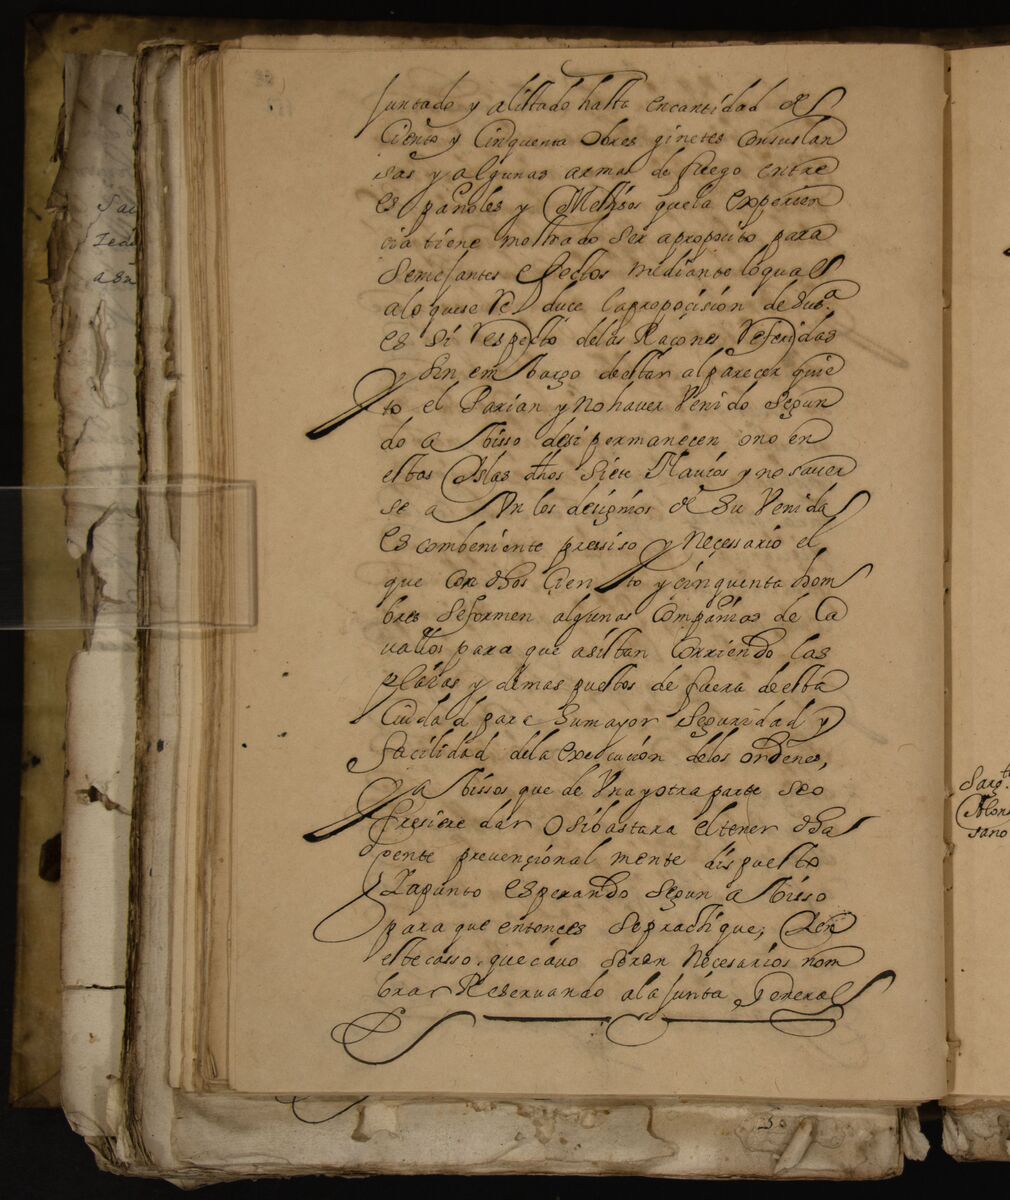 Juntado y alistado hasta encantidad de
Ciento y Cinquenta obres ginetes consuslan
sas y algunas armas de fuego entre
españoles y Mestisos quela experien
cia tiene mostrado ser aproposito para
semejantes efectos mediante loqual
alo quese Reduce lapropocision de
es si respecto delas Raçones Referidas
y sin embargo deestar alparecer quie
to el Parian y no haver Venido segun
do a Visso desi permanecen ono en
estas Yslas dhos siete Navios y no saver
se a Vn los designios de su Venida
es combeniente pressiso y necessario el
que con dhos Ciento y cinquenta hom
bres seformen algunas Compañias de Ca
vallos para que asistan Corriendo las
plaias y demas puestos de fuera deesta
Ciudad para sumayor seguridad y
facilidad dela execucion delos ordenes,
y a Vissos que de Vna y otra parte seo
fresiere dar o sibastara eltener dha
gente prevençional mente dispuesto
y apunto esperando segun a Visso
para que entonces sepractique, y en
este casso. que cavo seran necesarios nom
brar Reservando ala Junta General
Sarg.to
Alon
sano